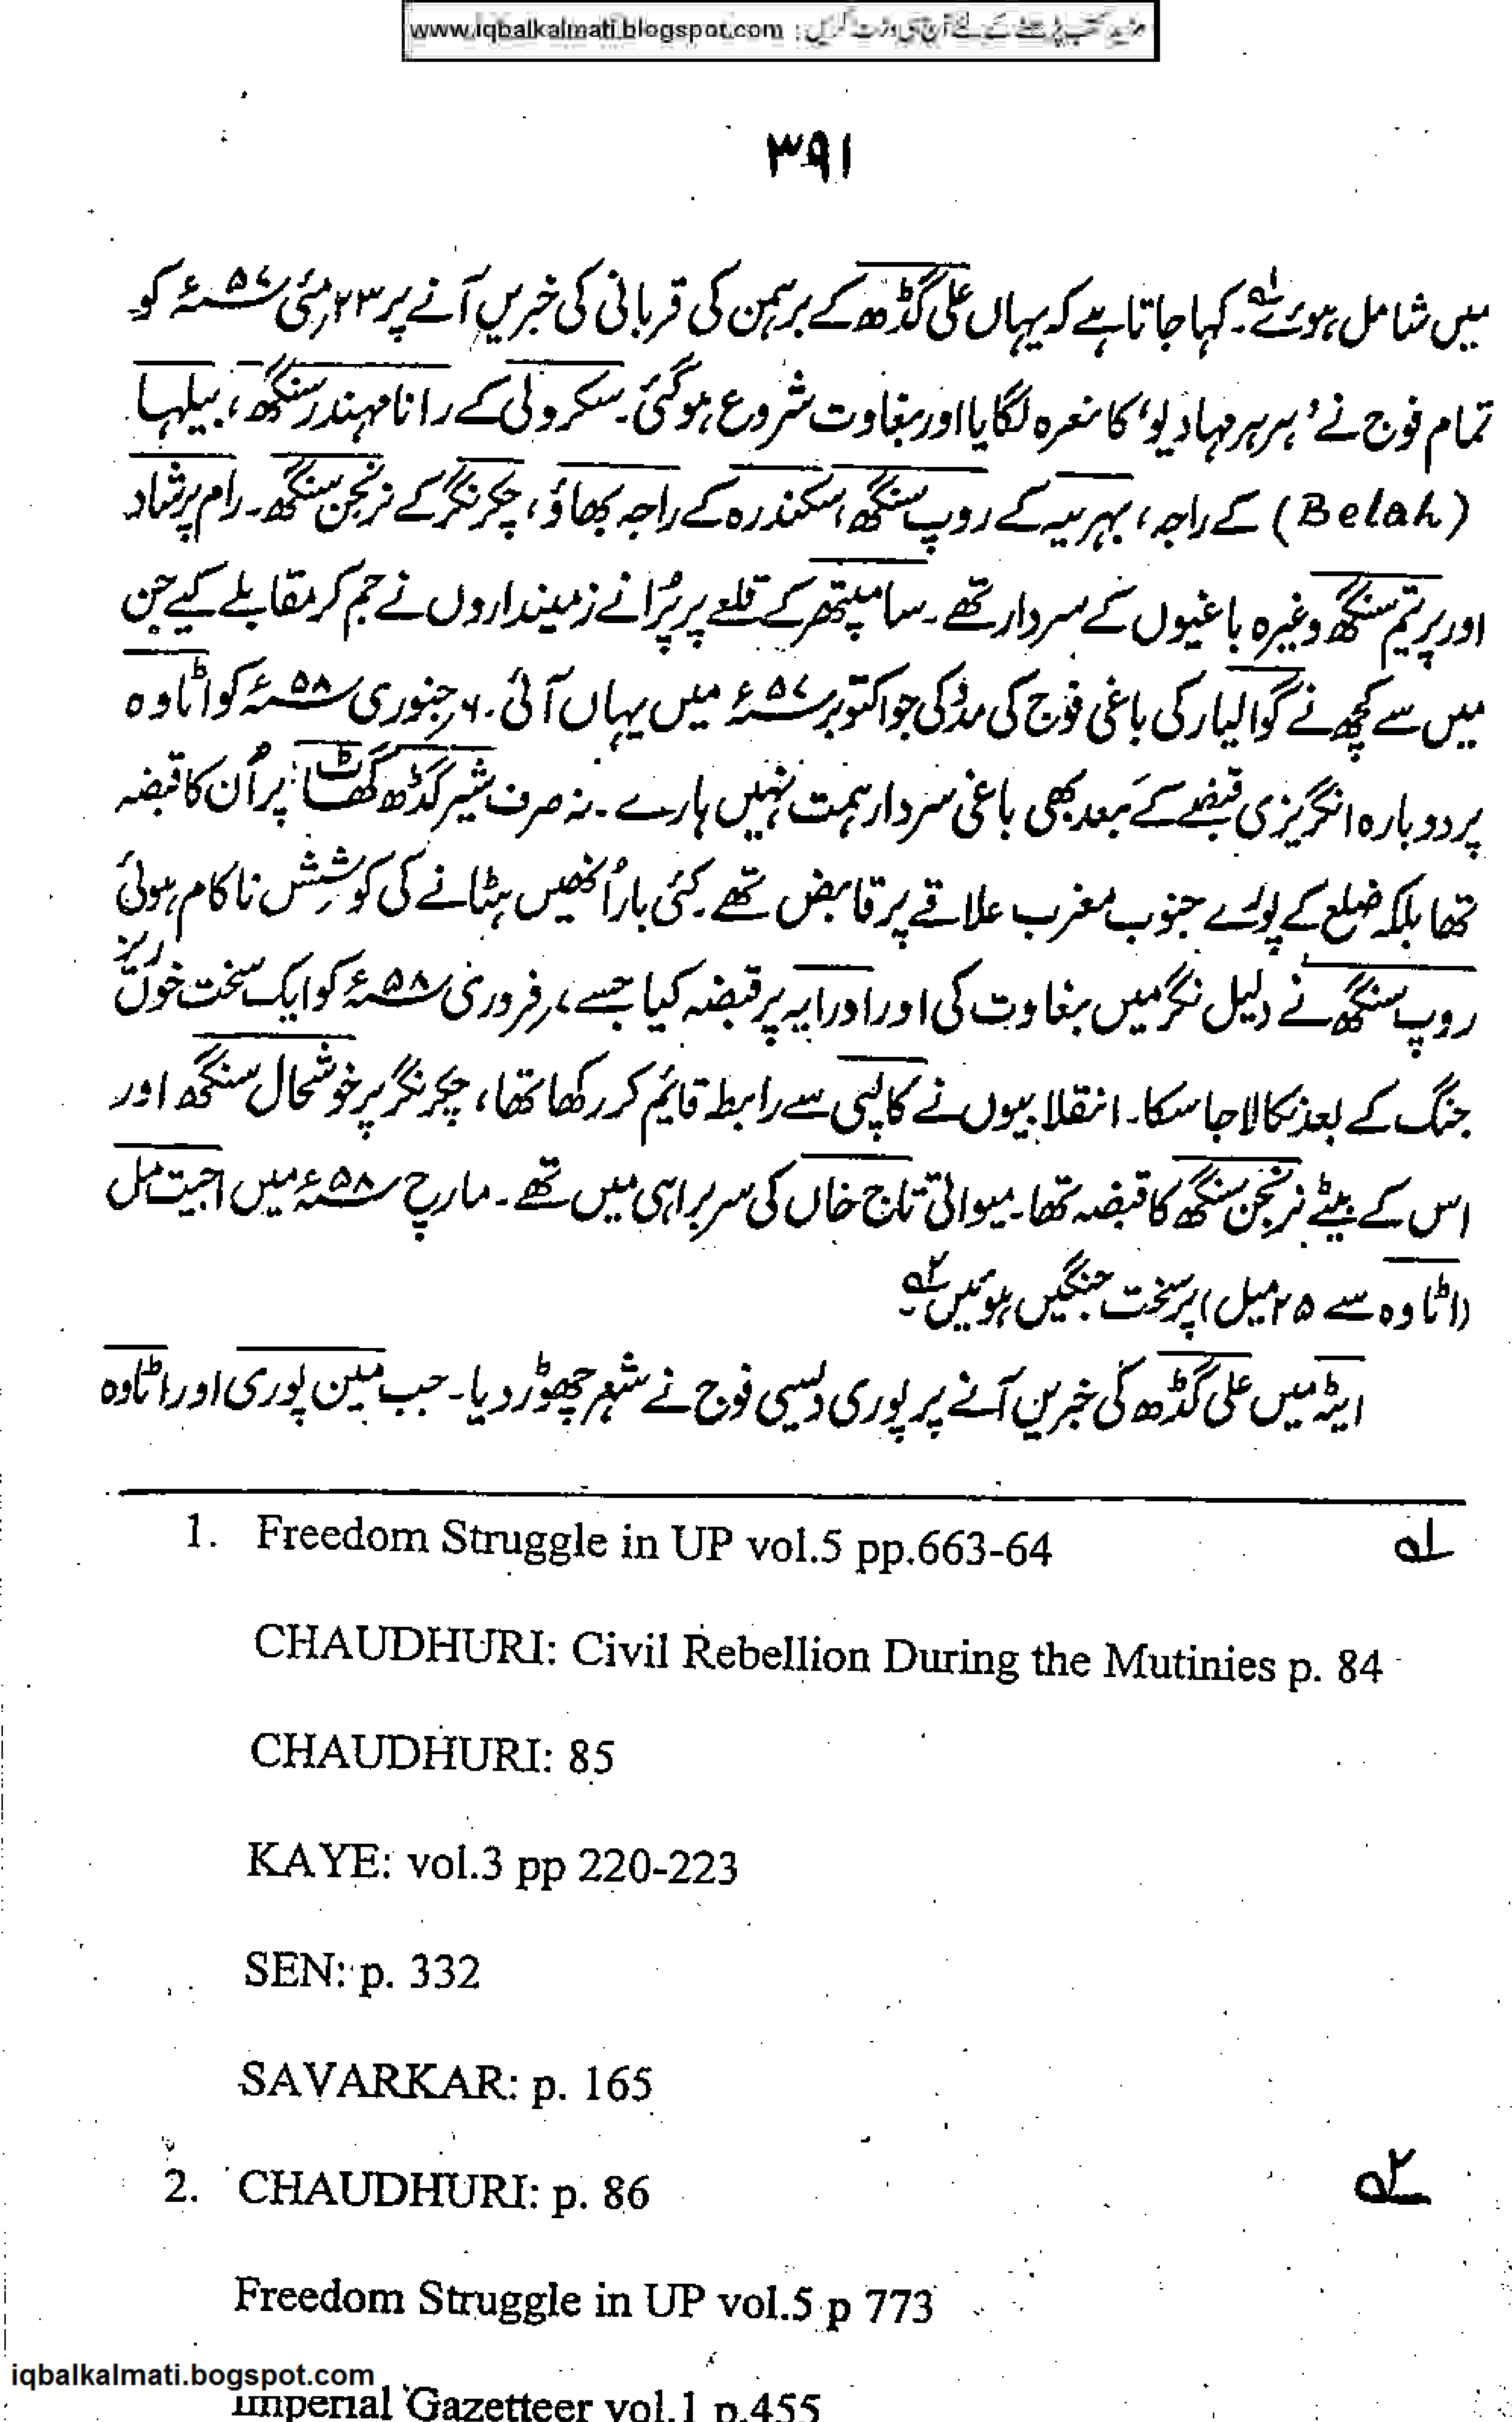 مزید کتب پڑھنے کے لئے آج ہی وزٹ کریں : www.iqbalkalmati.blogspot.com
۳۹۱
میں شامل ہوئے ؎۱۔ کہا جاتا ہے کہ یہاں علی گڈھ کے برہمن کی قربانی کی خبریں آنے پر ۲۳ مئی ۵۷ ؁ء کو
تمام فوج نے ’ہر ہر مہادیو‘ کا نعرہ لگایا اور بغاوت شروع ہوگئی۔ سکرولی کے رانا مہندر سنگھ، بیلہا
(Belah) کے راجہ، بہریہ کے روپ سنگھ، سکندرہ کے راجہ بھاؤ، چکر نگر کے نرنجن سنگھ۔ رام پرشاد
اور پریتم سنگھ وغیرہ باغیوں کے سردار تھے۔ سامپتھر کے قلعے پر پُرانے زمینداروں نے جم کر مقابلے کیے جن
میں سے کچھ نے گوالیار کی باغی فوج کی مدد کی جو اکتوبر ۵۷ ؁ء میں یہاں آئی۔ ۶؍ جنوری ۵۸ ؁ء کو اٹاوہ
پر دوبارہ انگریزی قبضے کے بعد بھی باغی سردار ہمت نہیں ہارے۔ نہ صرف شیر گڈھ گھاٹ پر اُن کا قبضہ
تھا بلکہ ضلع کے پورے جنوب مغرب علاقے پر قابض تھے۔ کئی بار اُنھیں ہٹانے کی کوشِش ناکام ہوئی
روپ سنگھ نے دلیل نگر میں بغاوت کی اور ادرایہ پر قبضہ کیا جسے ۷؍ فروری ۵۸ ؁ء کو ایک سخت خوں ریز
جنگ کے بعد نکالا جا سکا۔ انقلابیوں نے کالپی سے رابطہ قایٔم کر رکھا تھا، چکر نگر پر خوشحال سنگھ اور
اس کے بیٹے نرنجن سنگھ کا قبضہ تھا۔ میواتی تاج خاں کی سربراہی میں تھے۔ مارچ ۵۸ ؁ء میں اجیت مل
(اٹاوہ سے ۲۵ میل) پر سخت جنگیں ہوئیں ؎۲۔
ایٹہ میں علی گڈھ کی خبریں آنے پر پوری دیسی فوج نے شہر چھوڑ دیا۔ جب مین پوری اور اٹاوہ
1. Freedom Struggle in UP vol.5 pp.663-64 ؎۱
CHAUDHURI: Civil Rebellion During the Mutinies p. 84
CHAUDHURI: 85
KAYE: vol.3 pp 220-223
SEN: p. 332
SAVARKAR: p. 165
2. CHAUDHURI: p. 86 ؎۲
Freedom Struggle in UP vol.5 p 773
iqbalkalmati.bogspot.com
Imperial Gazetteer vol.1 p.455